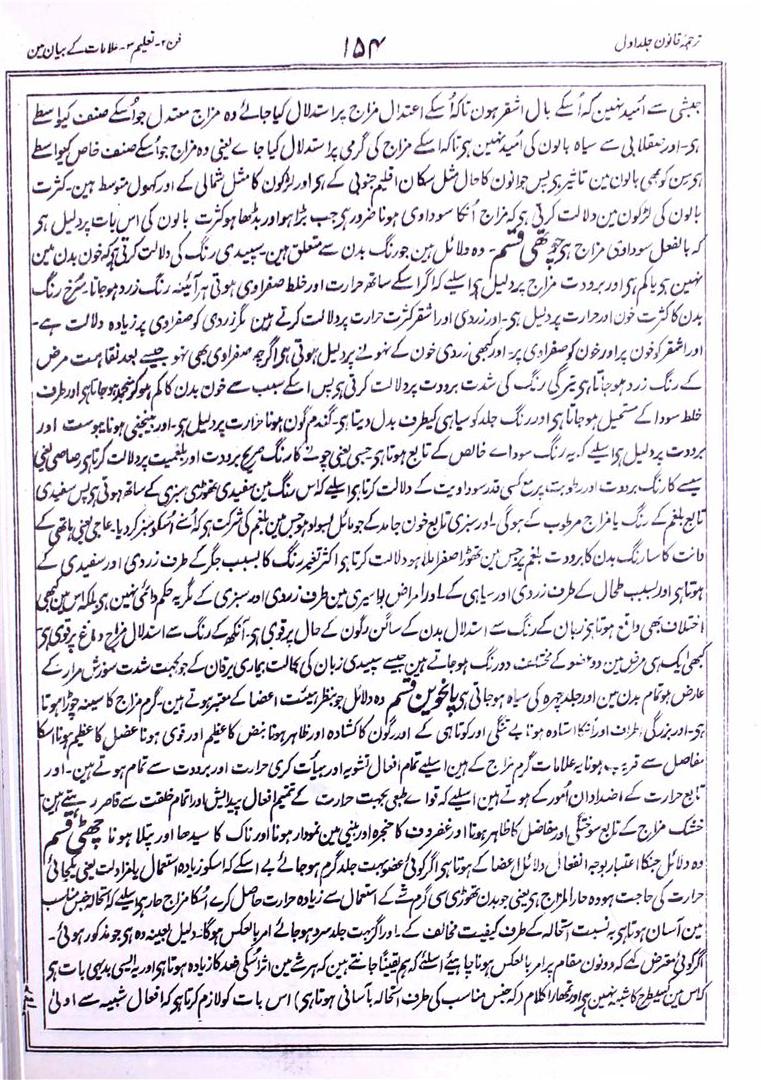 ترجمۂ قانون جلد اول
۱۵۴
فن ۲- تعلیم ۳- علامات کے بیان مین
حبشی سے اُمید نہین کہ اُسکے بال اشقر ہون تاکہ اُسکے اعتدال مزاج پر استدلال کیا جائے وہ مزاج معتدل جو اُسکے صنف کیواسطے
ہی- اور صقلابی سے سیاہ بالون کی اُمید نہین ہی تاکہ اسکے مزاج کی گرمی پر استدلال کیا جاے یعنی وہ مزاج جو اُسکے صنف خاص کیواسطے
ہی سن کو بھی بالون مین تاثیر ہی پس جوانون کا حال مثل سکان اقلیم جنوبی کے ہی اور لڑکون کا مثل شمالی کے اور کہول متوسط ہین- کثرت
بالون کی لڑکون مین دلالت کرتی ہی کہ مزاج اُنکا سوداوی ہونا ضرور ہی جب بڑا ہو اور بڈھا ہو کثرت بالون کی اس بات پر دلیل ہی
کہ بالفعل سوداوی مزاج ہی چوتھی قسم- وہ دلائل ہین جو رنگ بدن سے متعلق ہین- سپیدی رنگ کی دلالت کرتی ہی کہ خون بدن مین
نہین ہی یا کم ہی اور برودت مزاج پر دلیل ہی اسلیے کہ اگر اسکے ساتھ حرارت اور خلط صفراوی ہوتی ہر آئینہ رنگ زرد ہو جاتا- سُرخ رنگ
بدن کا کثرت خون اور حرارت پر دلیل ہی- اور زردی اور اشقر کثرت حرارت پر دلالت کرتے ہین مگر زردی کو صفراوی پر زیادہ دلالت ہے-
اور اشقر کو خون پر اور خون کو صفراوی پر- اور کبھی زردی خون کے نہونے پر دلیل ہوتی ہی اگرچہ صفراوی بھی نہو جیسے بعد نقاہت مرض
کے رنگ زرد ہو جاتا ہی تیرگی رنگ کی شدت برودت پر دلالت کرتی ہی پس اسکے سبب سے خون بدن کا کم ہو کر منجمد ہو جاتا ہی اور طرف
خلط سودا کے مستحیل ہو جاتا ہی اور رنگ جلد کو سیاہی کیطرف بدل دیتا ہی- گندم گون ہونا حرارت پر دلیل ہی- اور بینجنی ہونا یبوست اور
برودت پر دلیل ہی اسلیے کہ یہ رنگ سوداے خالص کے تابع ہوتا ہی جصی یعنی چونے کا رنگ صریح برودت اور بلغمیت پر دلالت کرتا ہی رصاصی یعنی
سیسے کا رنگ برودت اور رطوبت پر مع کسی قدر سوداویت کے دلالت کرتا ہی اسلیے کہ اس رنگ مین سفیدی تھوڑی سبزی کے ساتھ ہوتی ہی پس سفیدی
تابع بلغم کے رنگ یا مزاج مرطوب کے ہوگی- اور سبزی تابع خون جامد کے جو مائل بسواد ہو جس مین بلغم کی شرکت ہی کہ اُسنے اُسکو سبز کر دیا- عاجی یعنی ہاتھی کے
دانت کا سا رنگ بدن کا برودت بلغم پر جس مین تھوڑا صفرا ملا ہو دلالت کرتا ہی اکثر تغیر رنگ کا بسبب جگر کے طرف زردی اور سفیدی کے
ہوتا ہی اور بسبب طحال کے طرف زردی اور سیاہی کے- اور امراض بواسیری مین طرف زردی اور سبزی کے مگر یہ حکم دائمی نہین ہی بلکہ اس مین کبھی
اختلاف بھی واقع ہوتا ہی زبان کے رنگ سے استدلال بدن کے ساکن رگون کے حال پر قوی ہی- آنکھ کے رنگ سے استدلال مزاج دماغ پر قوی ہی
کبھی ایک ہی مرض مین دو عضو کے مختلف دو رنگ ہو جاتے ہین جیسے سپیدی زبان کی بحالت بیماری یرقان کے جو بجہت شدت سوزش مرار کے
عارض ہو تمام بدن مین اور جلد چہرہ کی سیاہ ہو جاتی ہی پانچوین قسم وہ دلائل جو بنظر ہیئت اعضا کے معتبر ہوتے ہین- گرم مزاج کا سینہ چوڑا ہوتا
ہی- اور بزرگی اطراف اور اُنکا استادہ ہونا بے تنگی اور کوتاہی کے اور رگون کا کشادہ اور ظاہر ہونا نبض کا عظیم اور قوی ہونا عضل کا عظیم ہونا اُسکا
مفاصل سے قریب ہونا یہ علامات گرم مزاج کے ہین اسلیے تمام افعال نشویہ اور ہیأت کری حرارت اور برودت سے تمام ہوتے ہین- اور
تابع حرارت کے اضداد ان اُمور کے ہوتے ہین اسلیے کہ قواے طبعی بجہت حرارت کے تتمیم افعال پیدایش اور اتمام خلقت سے قاصر رہتے ہین
خشک مزاج کے تابع سوختگی اور مفاصل کا ظاہر ہونا اور غضروف کا حنجرہ اور بینی مین نمودار ہونا اور ناک کا سیدھا اور پتلا ہونا چھٹی قسم
وہ دلائل جنکا اعتبار بوجہ انفعال دلائل اعضا کے ہوتا ہی اگر کوئی عضو بہت جلد گرم ہو جائے بے اسکے کہ اسکو زیادہ استعمال یا مزاولت یعنی یکجائی
حرارت کی حاجت ہو وہ حار المزاج ہی یعنی جو بدن تھوڑی سی گرم شے کے استعمال سے زیادہ حرارت حاصل کرے اُسکا مزاج حار ہی اسلیے کہ استحالہ جنس مناسب
مین آسان ہوتا ہی بہ نسبت استحالہ کے طرف کیفیت مخالف کے- اور اگر بہت جلد سرد ہو جائے امر بالعکس ہوگا- دلیل بعینہ وہ ہی جو مذکور ہوئی-
اگر کوئی معترض کہے کہ دونون مقام پر امر بالعکس ہونا چاہیئے اسلئے کہ ہم یقیناً جانتے ہین کہ ہر شے مین اثر اُسکی ضد کا زیادہ ہوتا ہی اور یہ ایسی بدیہی بات ہی
کہ اس مین کسیطرح کا شبہ نہین ہی اور تمھارا کلام (کہ جنس مناسب کی طرف استحالہ بآسانی ہوتا ہی) اس بات کو لازم کرتا ہی کہ افعال شبیہ سے اولیٰ